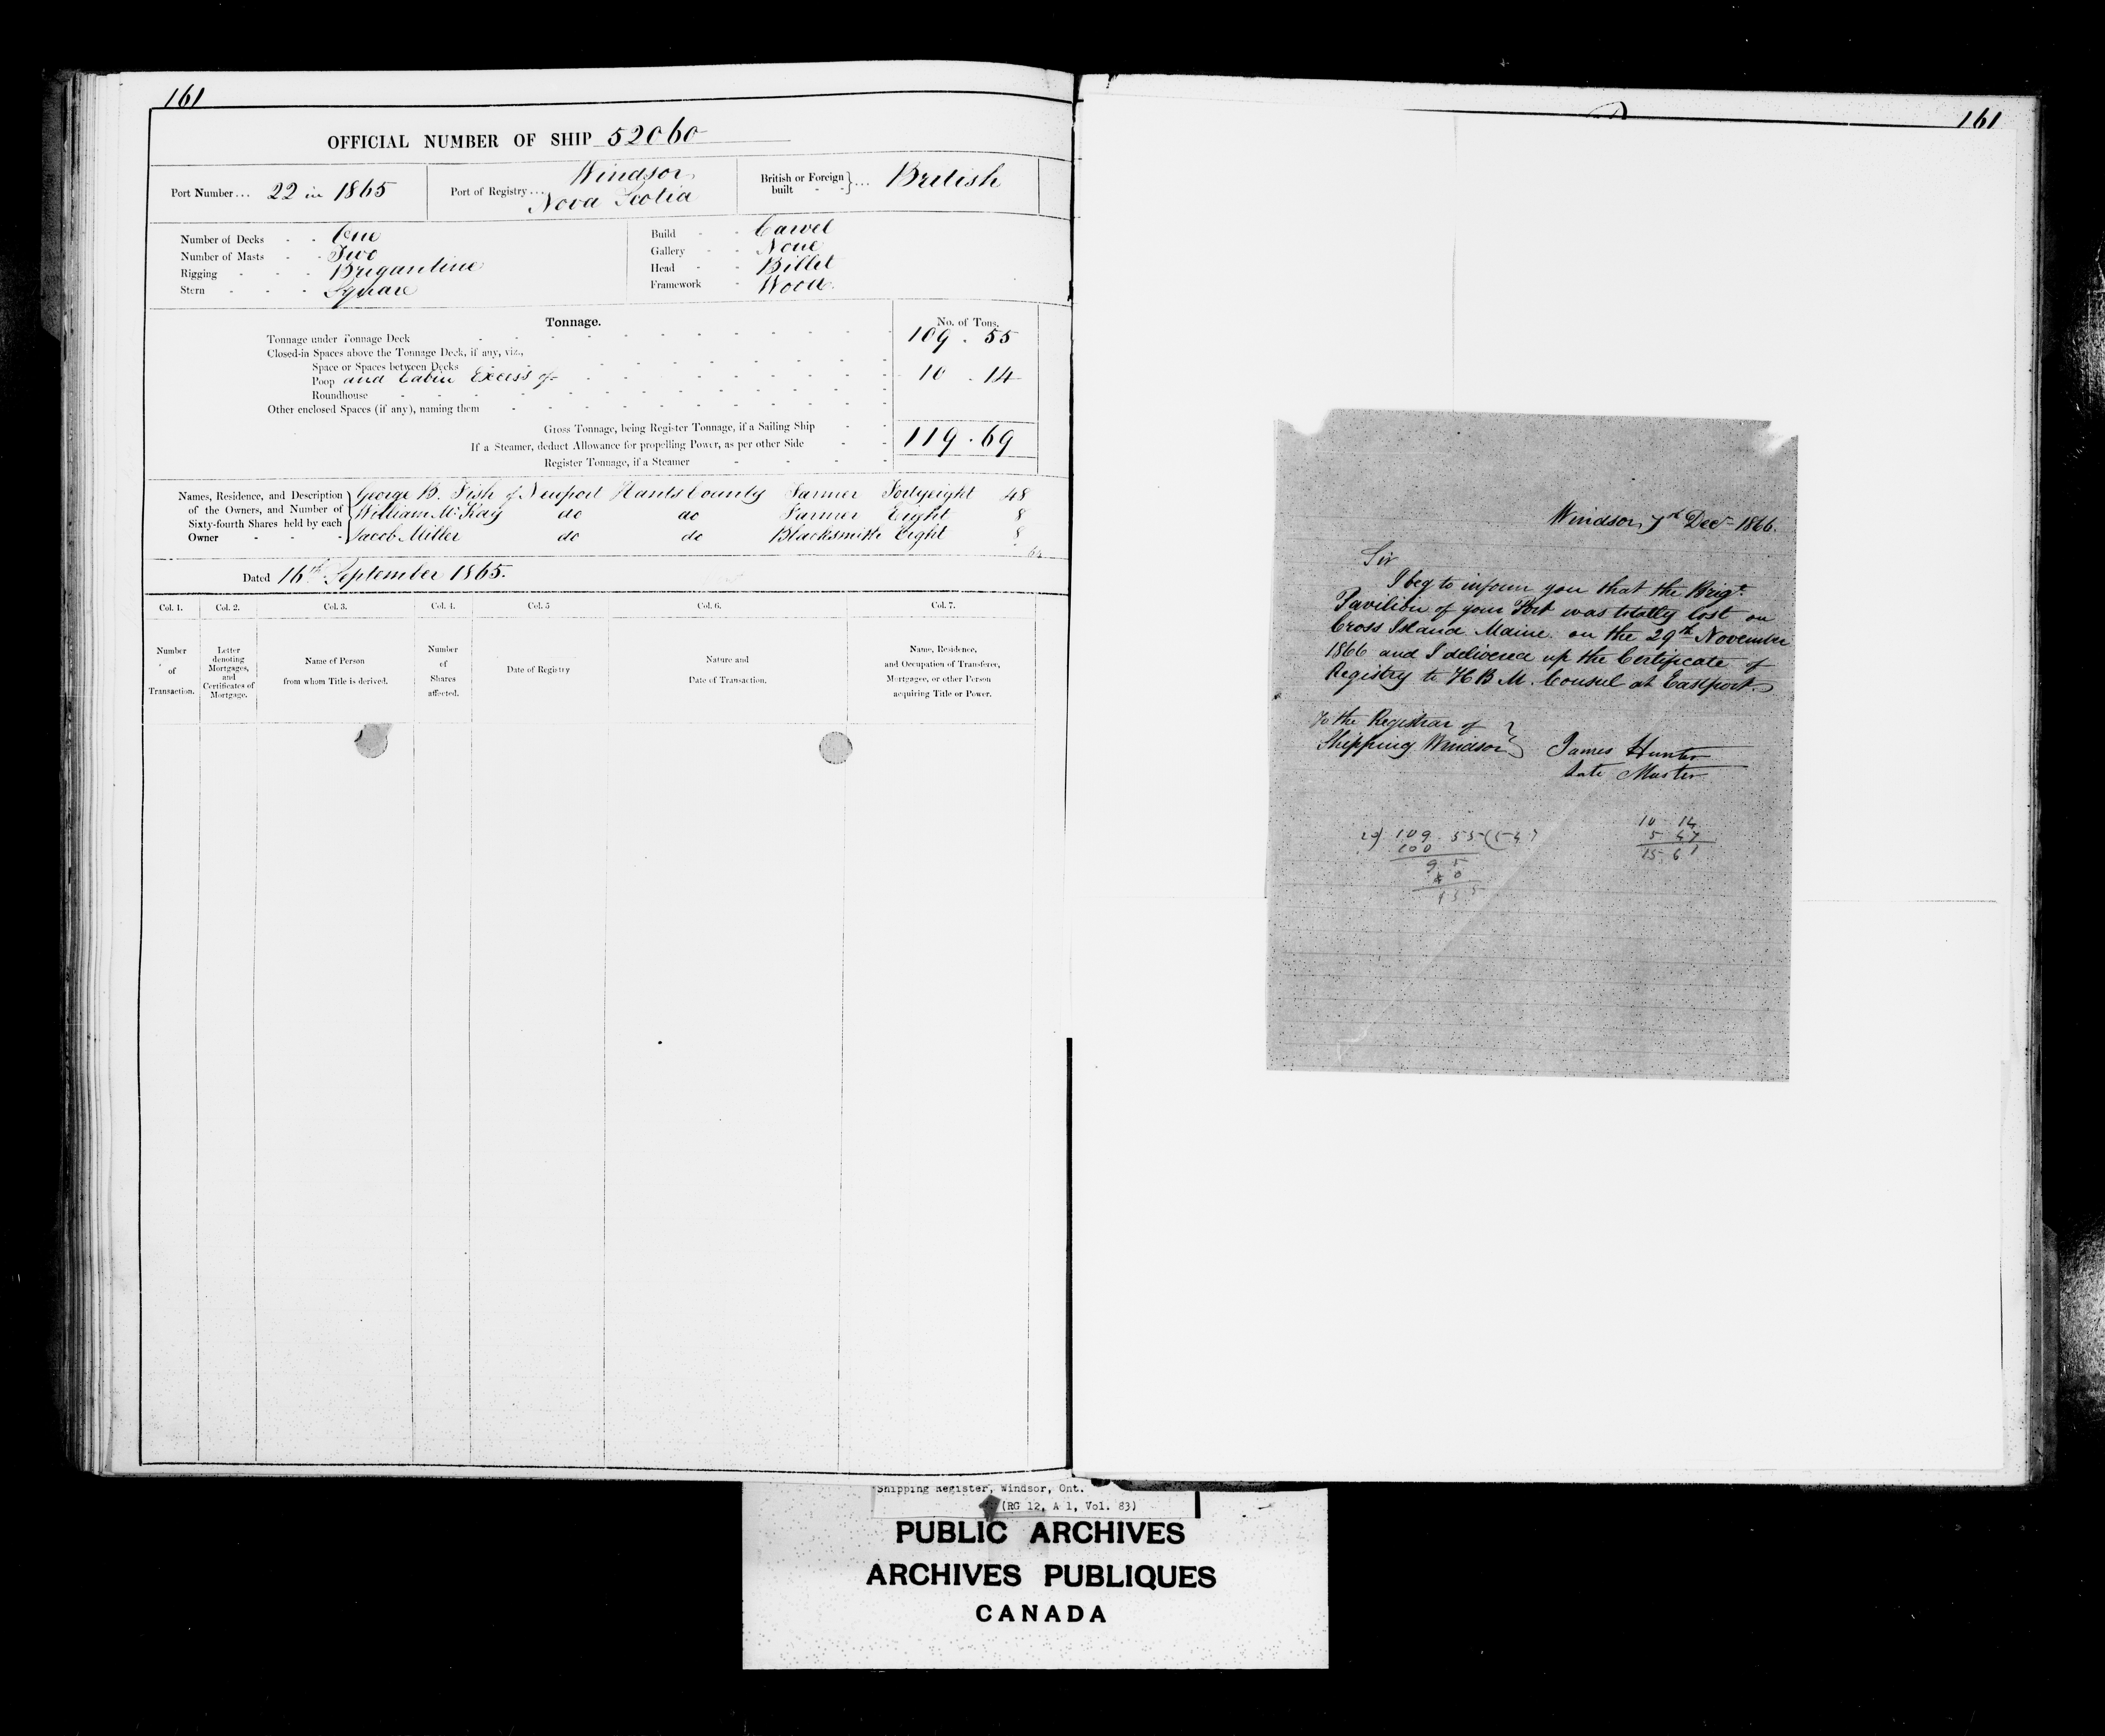 161
OFFICIAL NUMBER OF SHIP 52060
Port Number... 22 in 1865
Port of Registry... Windsor
Nova Scotia
British or Foreign built }... British
Number of Decks - - One
Number of Masts - - Two
Rigging - - - Brigantine
Stern - - - Square
Build - - Carvel
Gallery - - None
Head - - Billet
Framework - Wood.
Tonnage.
No. of Tons.
Tonnage under Tonnage Deck 109 . 55
Closed-in Spaces above the Tonnage Deck, if any, viz.,
Space or Spaces between Decks
Poop and Cabin Excess of 10 . 14
Roundhouse
Other enclosed Spaces (if any), naming them
Gross Tonnage, being Register Tonnage, if a Sailing Ship 119 . 69
If a Steamer, deduct Allowance for propelling Power, as per other Side
Register Tonnage, if a Steamer
Names, Residence, and Description
of the Owners, and Number of
Sixty-fourth Shares held by each
Owner
George B. Fish of Newport Hants County Farmer Fortyeight 48
William McKay do do Farmer Eight 8
Jacob Miller do do Blacksmith Eight 8
64
Dated 16th September 1865.
Col. 1. Col. 2. Col. 3. Col. 4. Col. 5 Col. 6. Col. 7.
Number
of
Transaction.
Letter
denoting
Mortgages,
and
Certificates of
Mortgage.
Name of Person
from whom Title is derived.
Number
of
Shares
affected.
Date of Registry
Nature and
Date of Transaction.
Name, Residence,
and Occupation of Transferee,
Mortgagee, or other Person
acquiring Title or Power.
161
Windsor 7th Decr 1866.
Sir
I beg to inform you that the Brigt
Pavilion of your Port was totally lost on
Cross Island Maine on the 29th November
1866 and I delivered up the Certificate of
Registry to H B M. Consul at Eastport.
To the Registrar of
Shipping Windsor }
James Hunter
Late Master
20) 109 . 55 (5-47
100
9 5
8 0
1 5 5
10 14
5 47
15 61
Shipping Register, Windsor, Ont.
(RG 12, A 1, Vol. 83)
PUBLIC ARCHIVES
ARCHIVES PUBLIQUES
CANADA